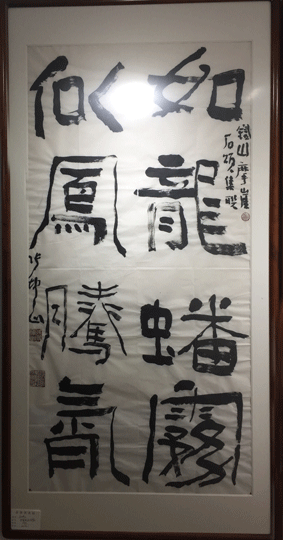 如龍蟠霧
似鳳騰氣
鐵山摩崖
石頌集聯